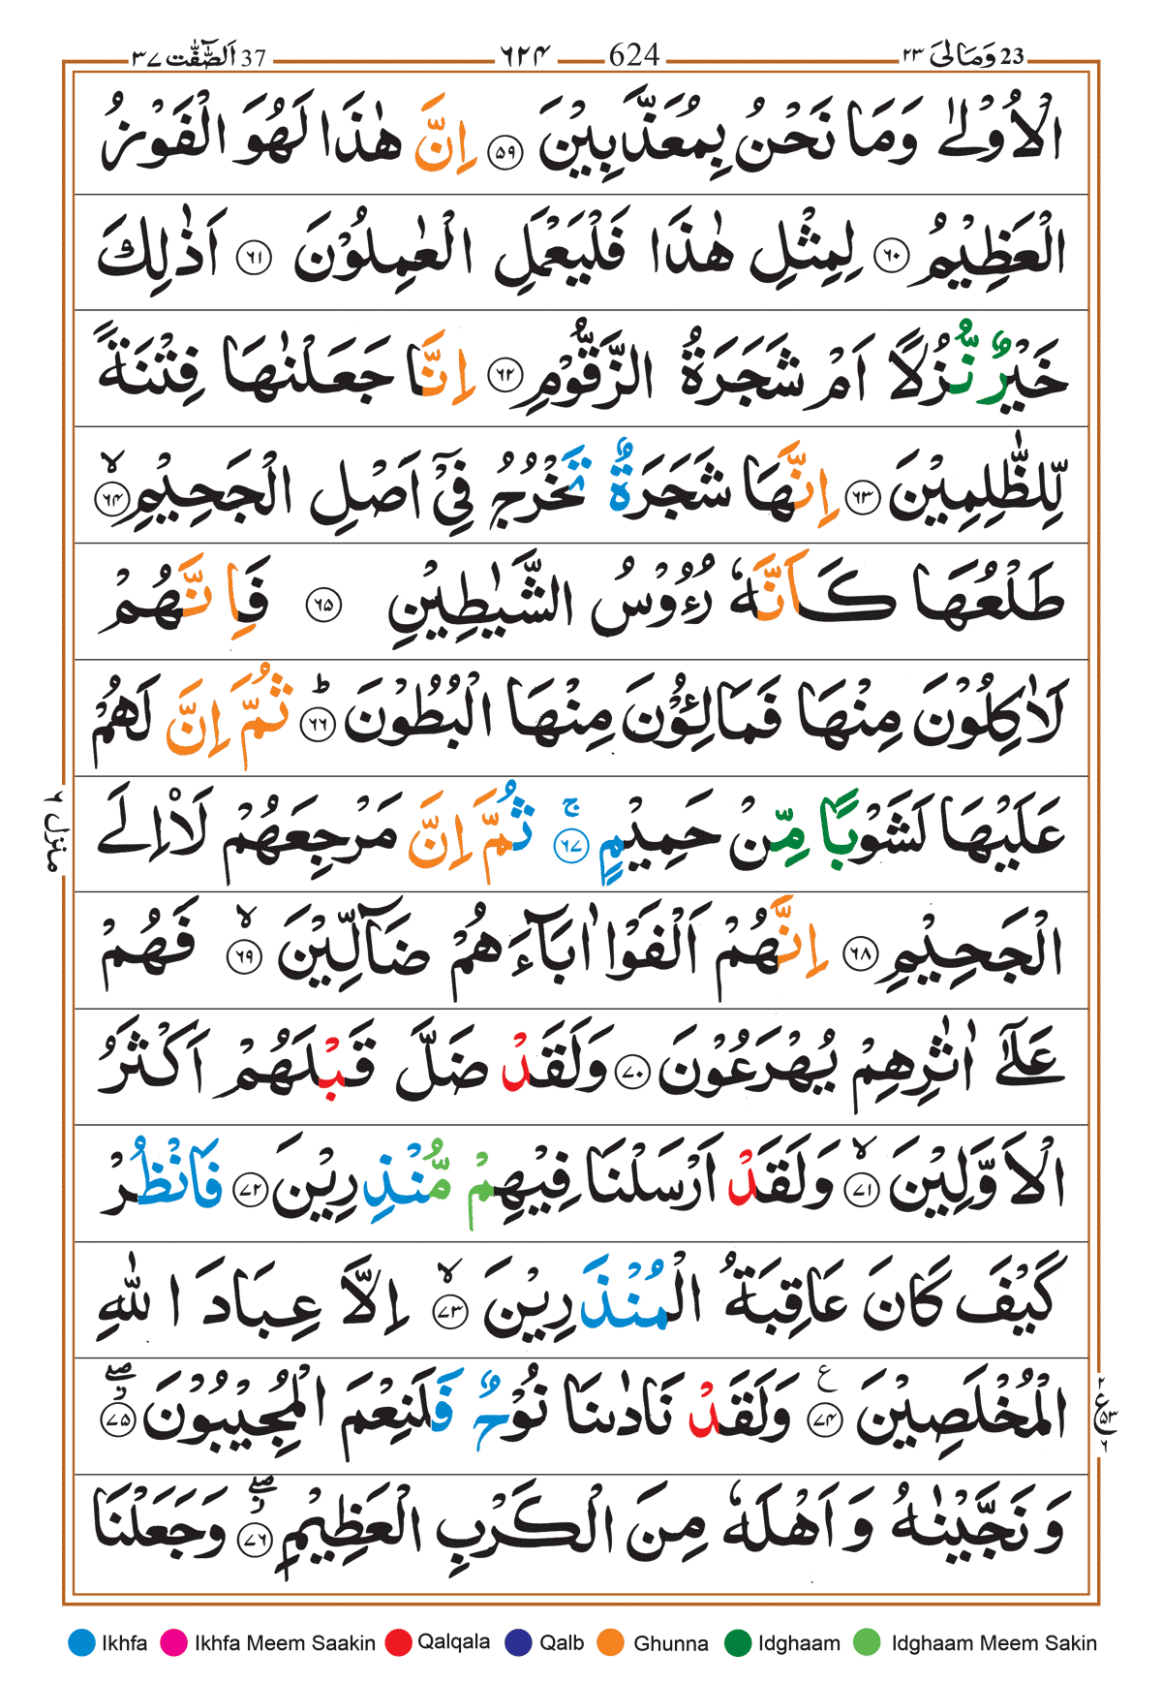 ٣٧ اَلصّٰٓفّٰت 37
٦٢٤ 624
٢٣ وَمَالِیَ 23
الْاُوْلٰى وَمَا نَحْنُ بِمُعَذَّبِيْنَ ٥٩ اِنَّ هٰذَا لَهُوَ الْفَوْزُ
الْعَظِيْمُ ٦٠ لِمِثْلِ هٰذَا فَلْيَعْمَلِ الْعٰمِلُوْنَ ٦١ اَذٰلِكَ
خَيْرٌ نُّزُلًا اَمْ شَجَرَةُ الزَّقُّوْمِ ٦٢ اِنَّا جَعَلْنٰهَا فِتْنَةً
لِّلظّٰلِمِيْنَ ٦٣ اِنَّهَا شَجَرَةٌ تَخْرُجُ فِيْٓ اَصْلِ الْجَحِيْمِ ۙ ٦٤
طَلْعُهَا كَاَنَّهٗ رُءُوْسُ الشَّيٰطِيْنِ ٦٥ فَاِنَّهُمْ
لَاٰكِلُوْنَ مِنْهَا فَمَالِـُٔوْنَ مِنْهَا الْبُطُوْنَ ؕ ٦٦ ثُمَّ اِنَّ لَهُمْ
عَلَيْهَا لَشَوْبًا مِّنْ حَمِيْمٍ ۚ ٦٧ ثُمَّ اِنَّ مَرْجِعَهُمْ لَاْاِلَى
الْجَحِيْمِ ٦٨ اِنَّهُمْ اَلْفَوْا اٰبَآءَهُمْ ضَآلِّيْنَ ۙ ٦٩ فَهُمْ
عَلٰٓى اٰثٰرِهِمْ يُهْرَعُوْنَ ٧٠ وَلَقَدْ ضَلَّ قَبْلَهُمْ اَكْثَرُ
الْاَوَّلِيْنَ ۙ ٧١ وَلَقَدْ اَرْسَلْنَا فِيْهِمْ مُّنْذِرِيْنَ ٧٢ فَانْظُرْ
كَيْفَ كَانَ عَاقِبَةُ الْمُنْذَرِيْنَ ۙ ٧٣ اِلَّا عِبَادَ اللّٰهِ
الْمُخْلَصِيْنَ ع ٧٤ وَلَقَدْ نَادٰىنَا نُوْحٌ فَلَنِعْمَ الْمُجِيْبُوْنَ ۖ ز ٧٥
وَنَجَّيْنٰهُ وَاَهْلَهٗ مِنَ الْكَرْبِ الْعَظِيْمِ ۖ ز ٧٦ وَجَعَلْنَا
منزل ٦
٢ ع ٥٣ ٦
Ikhfa Ikhfa Meem Saakin Qalqala Qalb Ghunna Idghaam Idghaam Meem Sakin